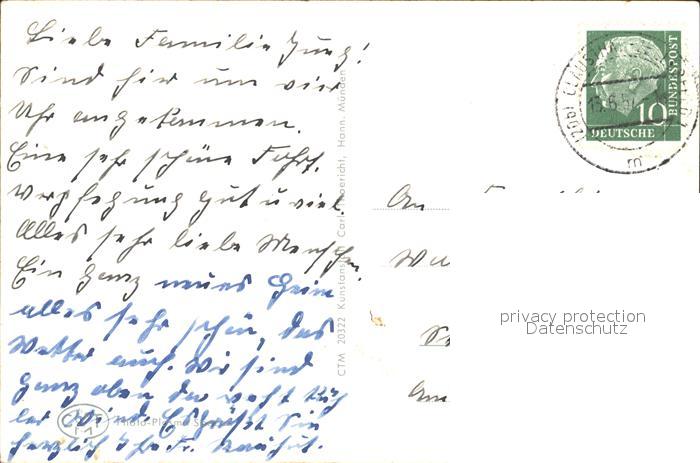 Liebe Familie Jung!
Sind hir um vier
Uhr angekommen.
Eine sehr schöne Fahrt.
Verpflegung gut u viel.
Alles sehr liebe Menschen.
Ein ganz neues Heim
alles sehr schön, das
Wetter auch. Wir sind
ganz oben da weht küh
ler Wind. Es grüßt Sie
herzlich Ihr Fr.
CTM 20322 Kunstanstalt Carl Hoericht, Hann. Münden
DEUTSCHE
BUNDESPOST
10
An
privacy protection
Datenschutz
Am